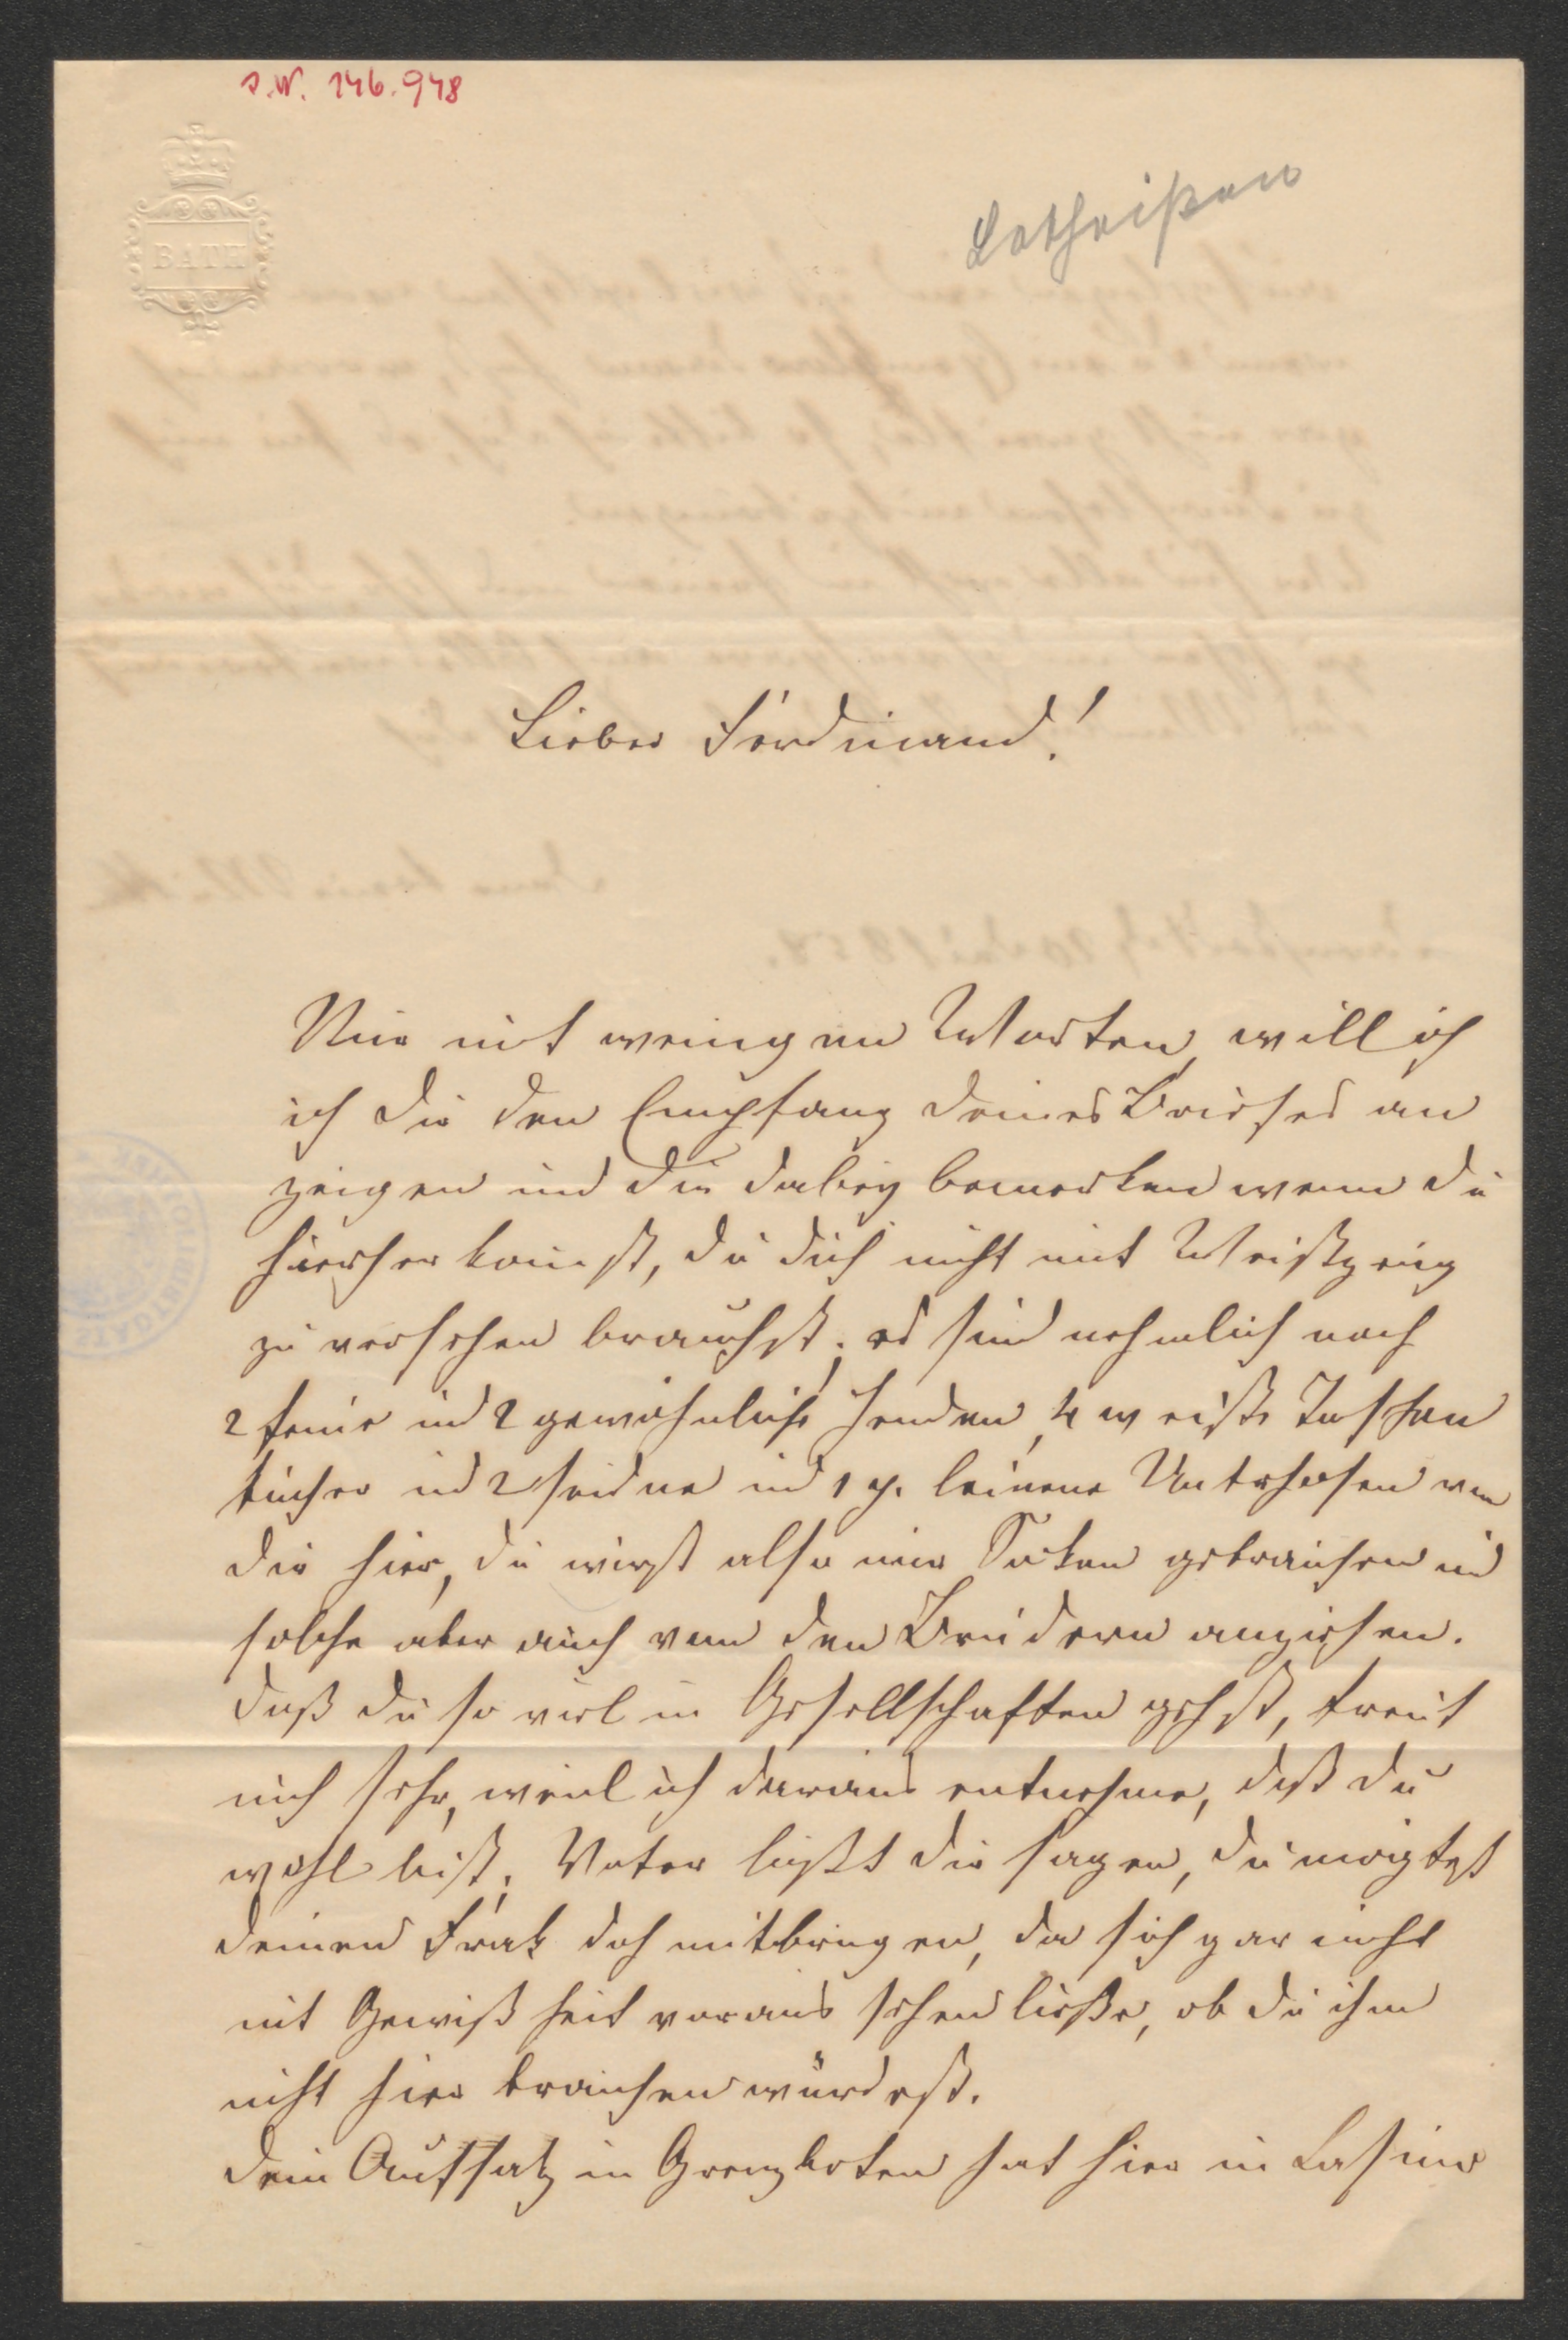 J.N. 146.948
BATH
Lotheißen
Lieber Ferdinand!
Nur mit wenigen Worten will ich
ich dir den Empfang deines Briefes an
zeigen und dir dabey bemerken wenn du
hierher komst, du dich nicht mit Weißzeug
zu versehen brauchst; es sind nehmlich noch
2 feine und 2 gewöhnliche Hemden, 4 weiße Taschen
tücher und 2 seidne und 1 p. leinene Unterhosen von
dir hier, du wirst also nur Socken gebrauchen und
solche aber auch von den Brüdern anziehen.
daß du so viel in Gesellschaften gehst, freut
mich sehr, weil ich daraus entnehme, daß du
wohl bist. Vater läßt dir sagen, du mögtest
deinen Frak doch mitbringen, da sich gar nicht
mit Gewißheit voraus sehen ließe, ob du ihn
nicht hier brauchen würdest.
Dein Aufsatz in Grenzboten hat hier in Casino